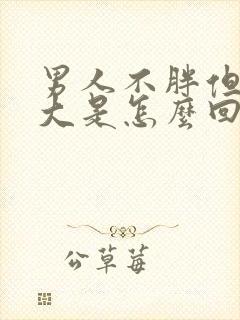 男人不胖但
大是怎麼回
公草莓